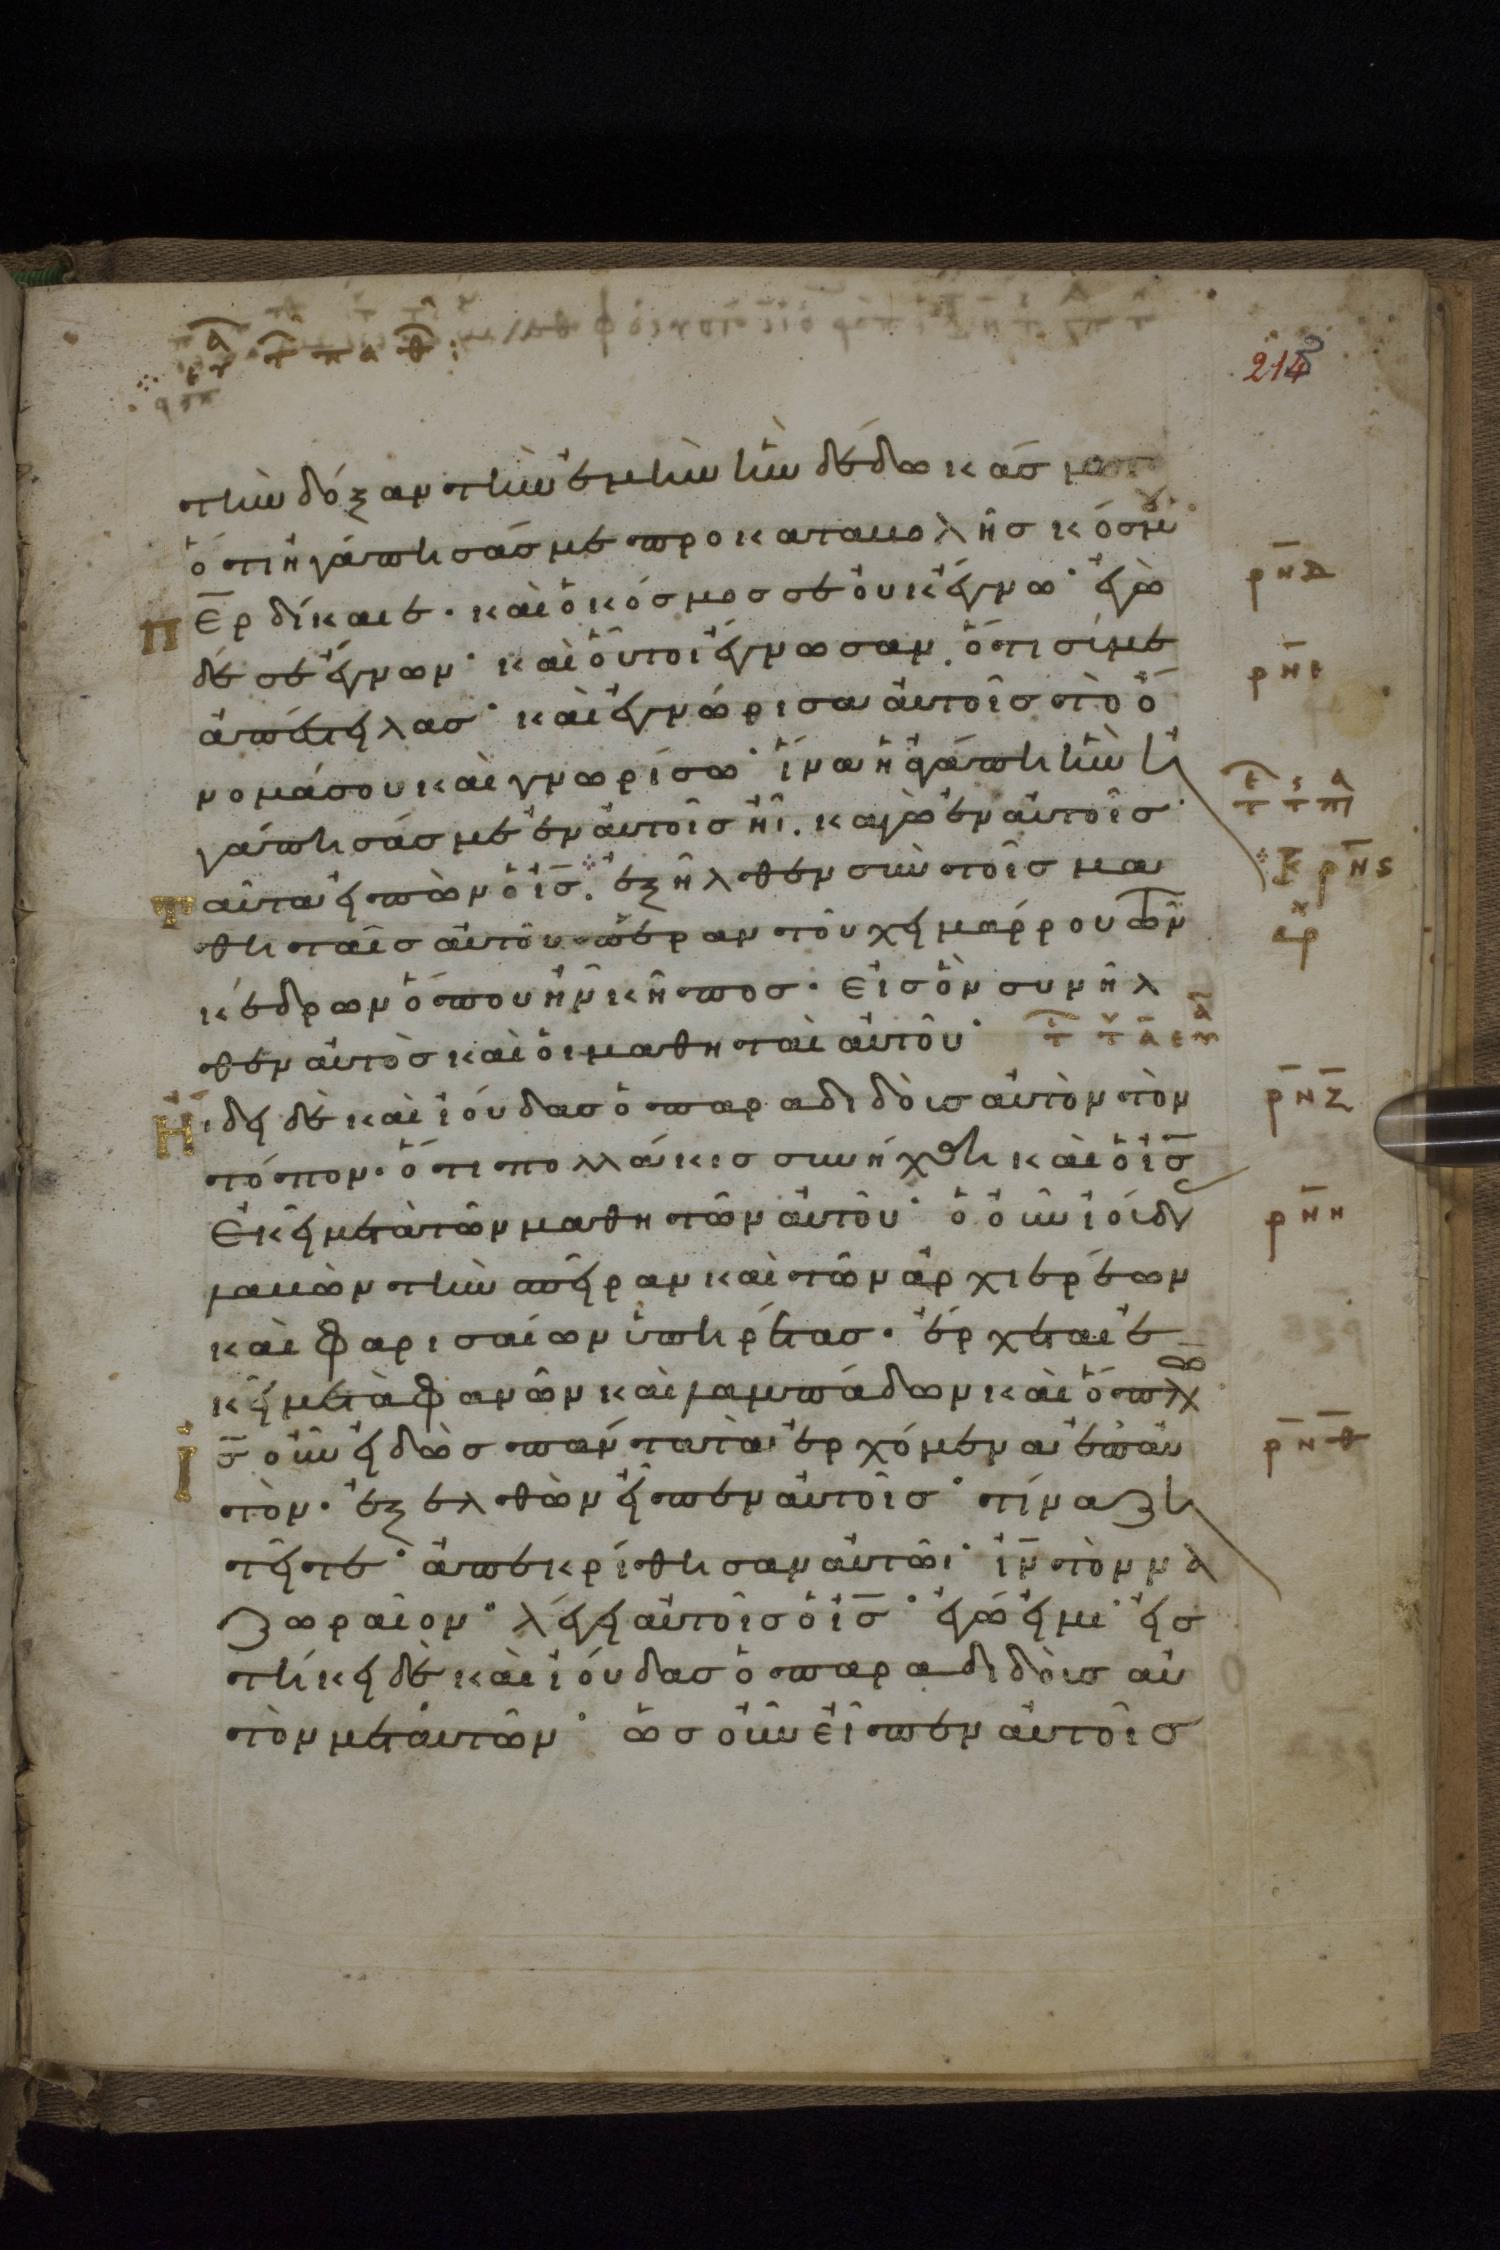 214
τὴν δόξαν τὴν ἐμὴν ἣν δέδωκάσ μοι
ὅτι ἠγάπησάσ με προ καταβολῆσ κόσμου
Π̅ε̅ρ δίκαιε· καὶ ὁ κόσμοσ σε οὐκ ἔγνω· ἐγὼ
δέ σε ἔγνων· καὶ οὗτοι ἔγνωσαν. ὅτι σύ με
ἀπέστειλασ· καὶ ἐγνώρισα αὐτοῖσ τὸ ὄ
νομά σου καὶ γνωρίσω· ἵνα ἡ ἀγάπη ἣν ἠ
γάπησάσ με ἐν αὐτοῖσ ἦι. καγὼ ἐν αὐτοῖσ·
Ταῦτα εἰπὼν ὁ ἰ̅σ̅. ἐξῆλθεν σὺν τοῖσ μα
θηταῖσ αὐτοῦ πέραν τοῦ χειμάρρου τῶν
κέδρων ὅπου ἦν κῆποσ· εἰσ ὃν εἰσῆλ
θεν αὐτὸσ καὶ οἱ μαθηταὶ αὐτοῦ·
Ἤιδει δὲ καὶ ἰούδασ ὁ παραδιδοὺσ αὐτὸν τὸν
τόπον· ὅτι πολλάκισ συνήχθη καὶ ὁ ἰ̅σ̅
ἐκεῖ μετὰ τῶν μαθητῶν αὐτοῦ· ὁ οὖν ἰούδασ
λαβὼν τὴν σπεῖραν καὶ τῶν ἀρχιερέων
καὶ φαρισαίων ὑπηρέτασ· ἔρχεται ἐ
κεῖ μετὰ φανῶν καὶ λαμπάδων καὶ ὅπλων
Ἰ̅σ̅ οὖν εἰδὼσ πάντα τὰ ἐρχόμενα ἐπ αὐ
τὸν· ἐξελθὼν εἶπεν αὐτοῖσ· τίνα ζη
τεῖτε· ἀπεκρίθησαν αὐτῶι· ἰ̅ν̅ τὸν να
ζωραῖον· λέγει αὐτοῖσ ὁ ἰ̅σ̅· ἐγώ εἰμι· εἱσ
τήκει δὲ καὶ ἰούδασ ὁ παραδιδοὺσ αὐ
τὸν μετ αὐτῶν· ὡσ οὖν εἶπεν αὐτοῖσ
ρνδ
ρνε
ρνϛ
ρνζ
ρνη
ρνθ